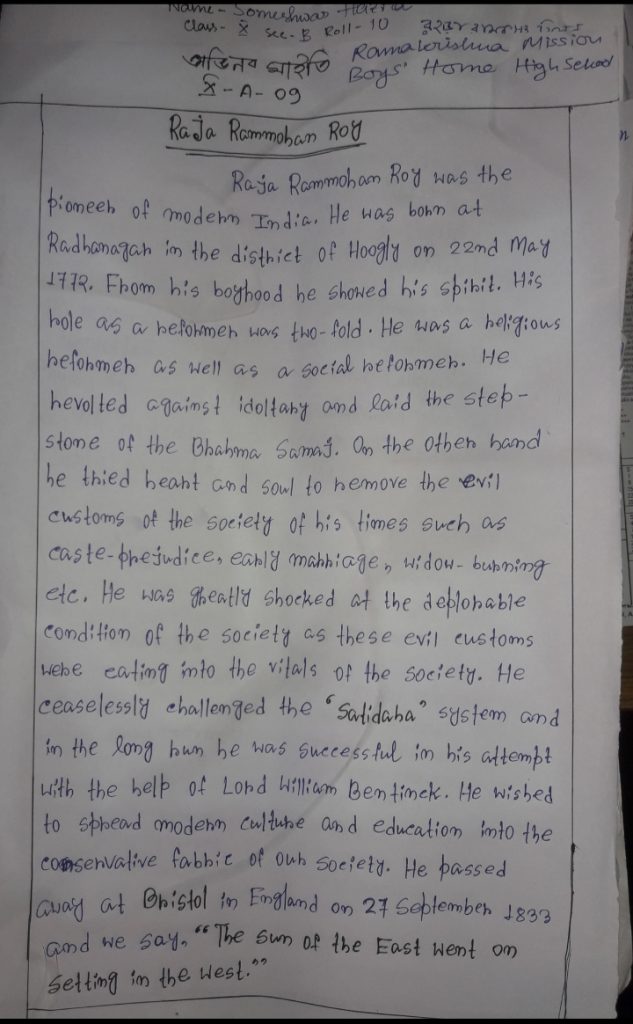 Name - Someshwar Hazra
Class - X Sec - B Roll - 10
অভিনব মাইতি Ramakrishna Mission
Boys' Home High School
X - A - 09
Raja Rammohan Roy
Raja Rammohan Roy was the
pioneer of modern India. He was born at
Radhanagar in the district of Hoogly on 22nd May
1772. From his boyhood he showed his spirit. His
role as a reformer was two-fold. He was a religious
reformer as well as a social reformer. He
revolted against idoltary and laid the step-
stone of the Brahma Samaj. On the other hand
he tried heart and soul to remove the evil
customs of the society of his times such as
caste-prejudice, early marriage, widow-burning
etc. He was greatly shocked at the deplorable
condition of the society as these evil customs
were eating into the vitals of the society. He
ceaselessly challenged the “Satidaha” system and
in the long run he was successful in his attempt
with the help of Lord William Bentinck. He wished
to spread modern culture and education into the
conservative fabric of our society. He passed
away at Bristol in England on 27 September 1833
and we say, “The sun of the East went on
setting in the west.”